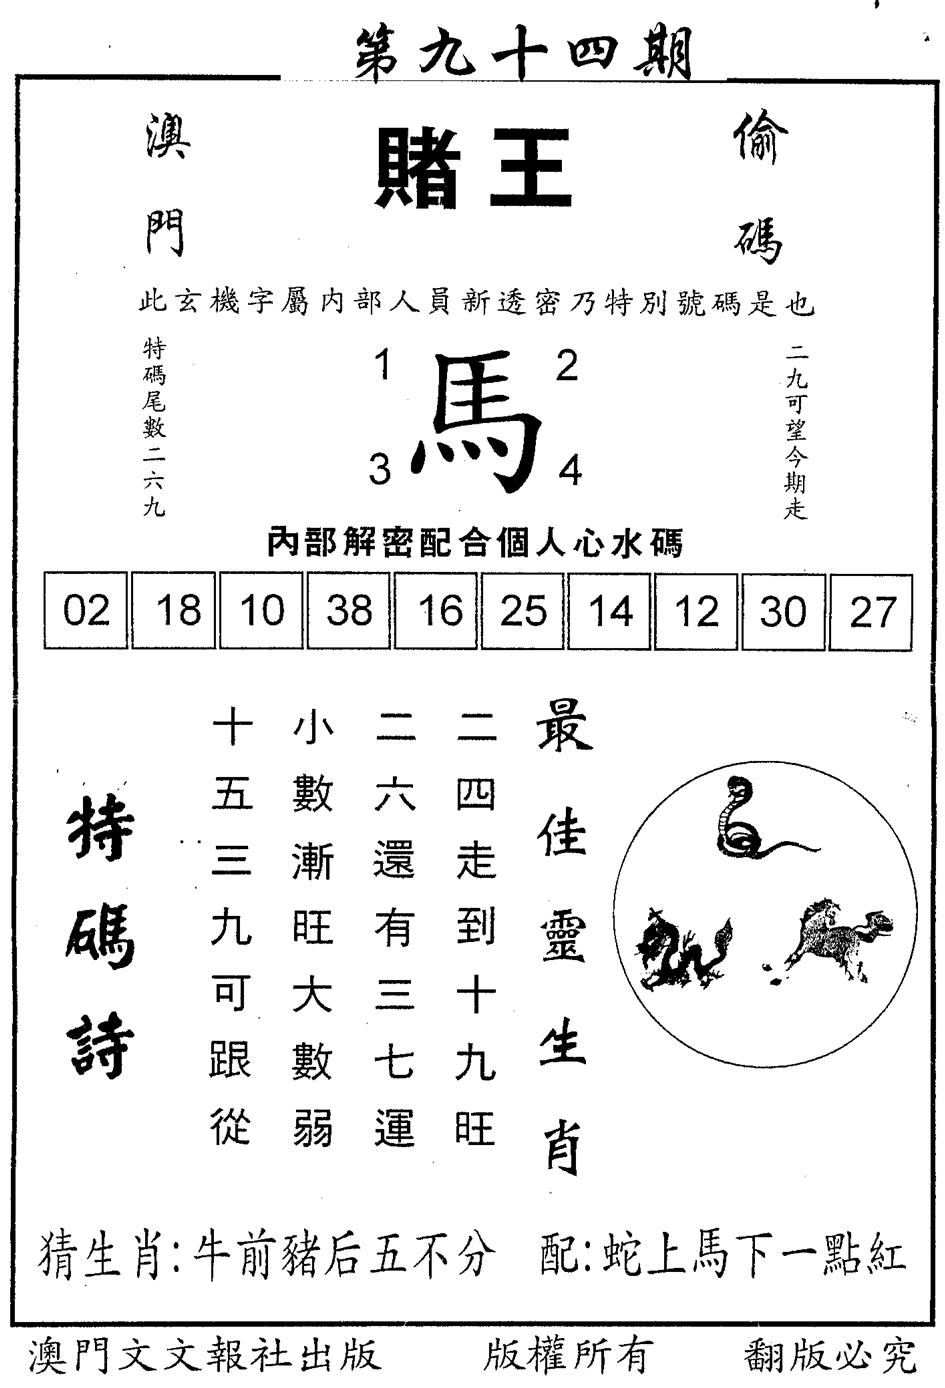 第九十四期
澳門
賭王
偷碼
此玄機字屬內部人員新透密乃特別號碼是也
特碼尾數二六九
1 2
馬
3 4
二九可望今期走
內部解密配合個人心水碼
02 18 10 38 16 25 14 12 30 27
最佳靈生肖
二四走到十九旺
二六還有三七運
小數漸旺大數弱
十五三九可跟從
特碼詩
猜生肖:牛前豬后五不分 配:蛇上馬下一點紅
澳門文文報社出版 版權所有 翻版必究